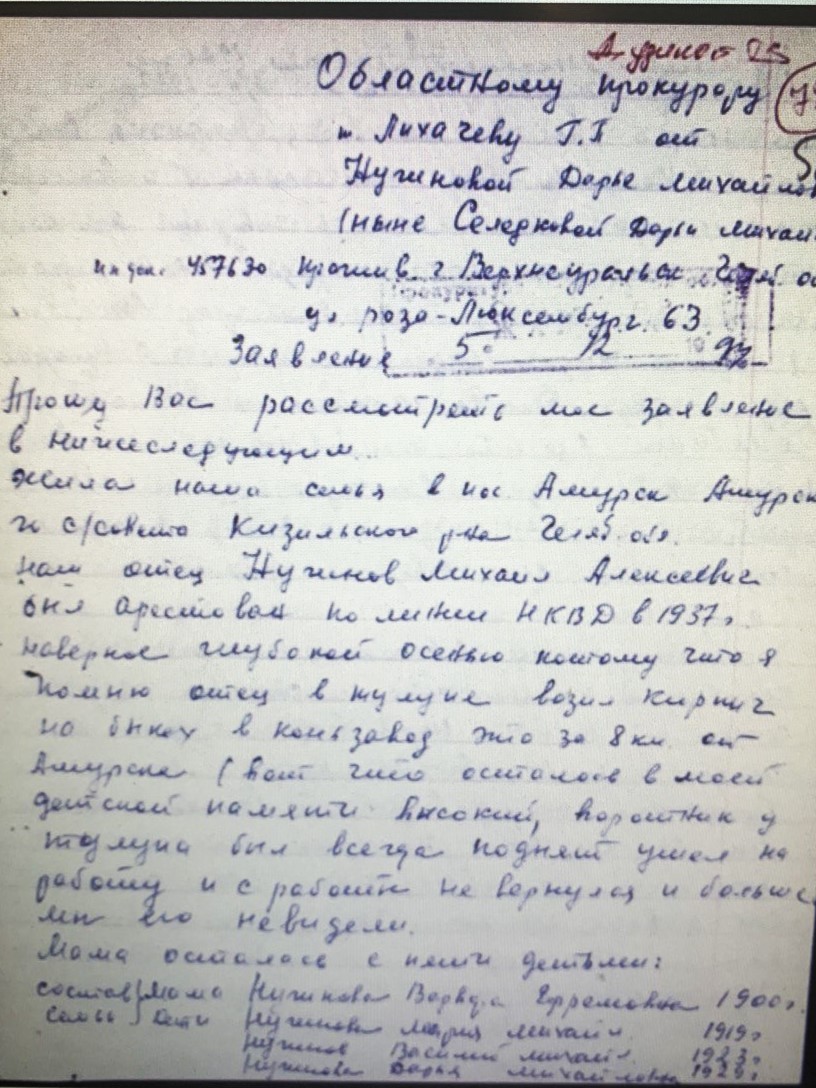 Областному прокурору
т Лихачеву Г.Г от
Нучиновой Дарье Михайлов
(ныне Селедковой Дарьи Михай
индек. 457630 прожив. г. Верхнеуральск Челяб об
ул роза-Люксембург. 63
Заявление 5 12 92
Прошу Вас рассмотреть мое заявление
в нижеследующим.
жила наша семья в пос Амурск Амурск
го с/совета Кизильского р-на Челяб обл.
наш отец Нучинов Михаил Алексеевич
был арестован по линии НКВД в 1937г
наверное глубокой осенью потому что я
помню отец в тулупе возил кирпич
на быках в конзавод это за 8 км от
Амурска (вот что осталось в моей
детской памяти высокий, воротник у
тулупа был всегда поднят ушел на
работу и с работы не вернулся и больше
мы его невидели.
Мама осталась с нами детьми:
состав} Мама Нучинова Варвара Ефремовна 1900г.
семьи} дети Нучинова Мария Михайл. 1919г
Нучинов Василий Михайл. 1923г
Нучинова Дарья Михайловна